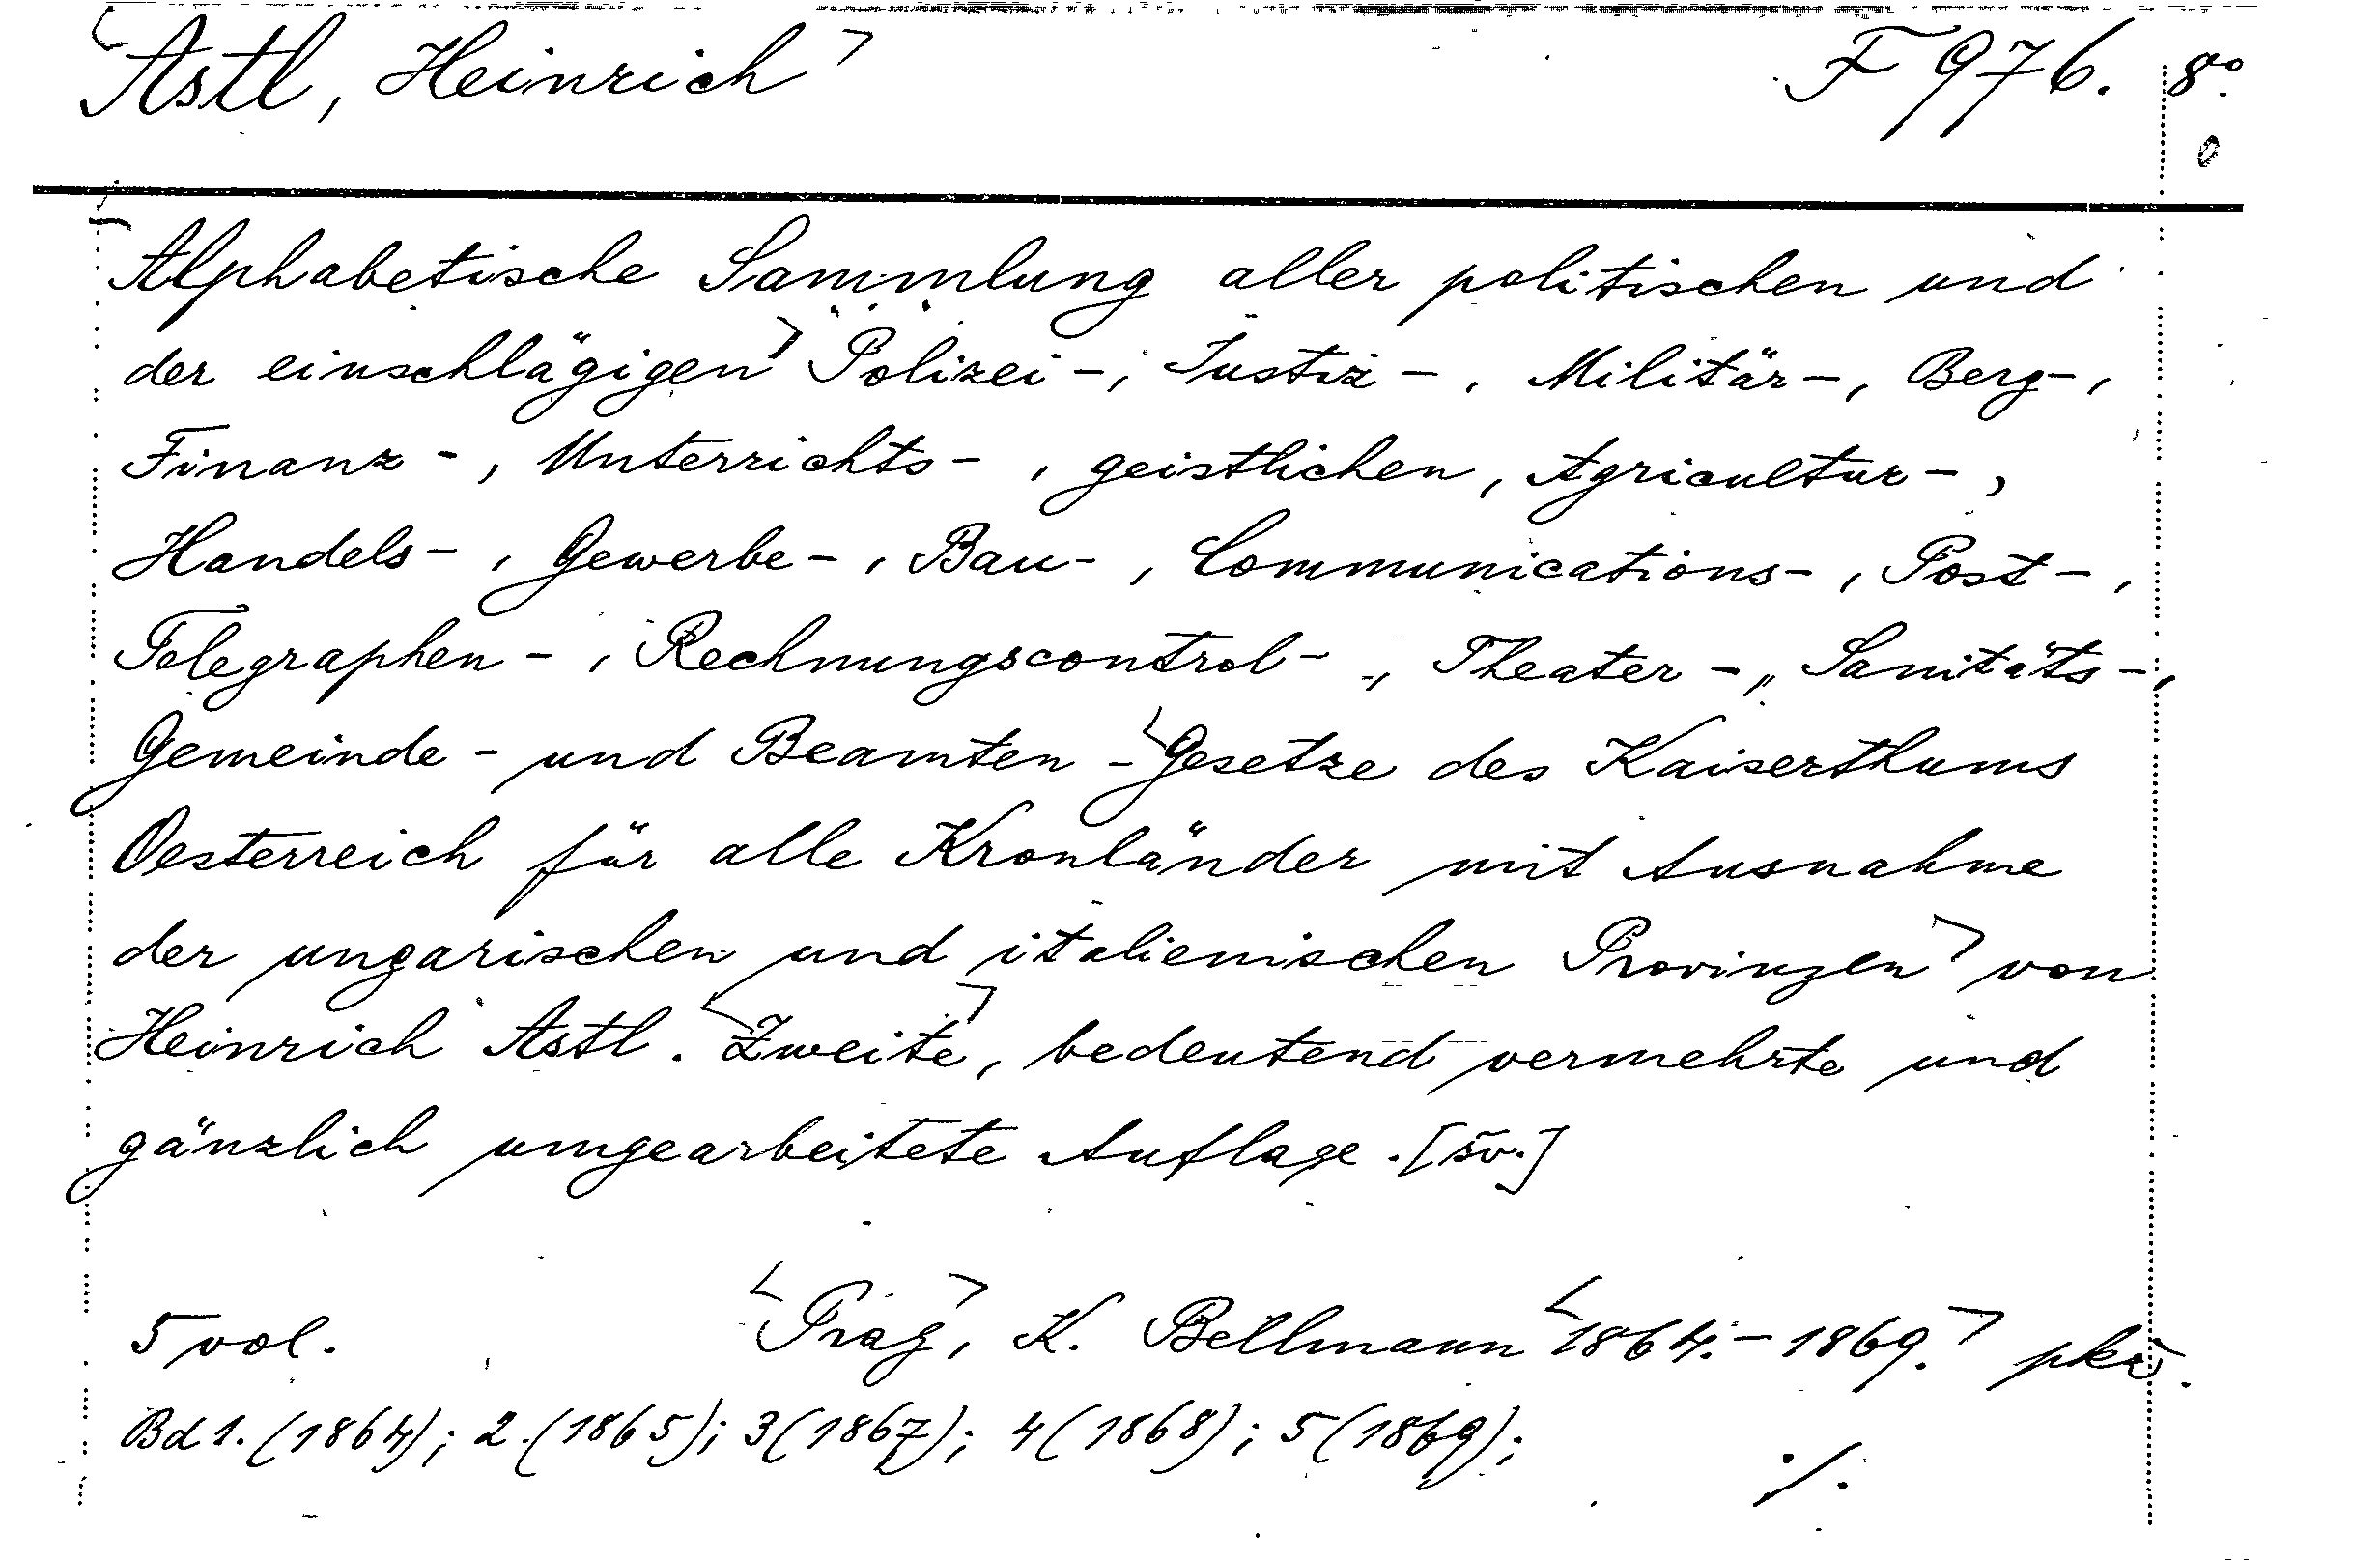 Astl, Heinrich F 976. 8°.
Alphabetische Sammlung aller politischen und
der einschlägigen Polizei-, Justiz-, Militär-, Berg-,
Finanz-, Unterrichts-, geistlichen, Agricultur-,
Handels-, Gewerbe-, Bau-, Communications-, Post-,
Telegraphen-, Rechnungscontrol-, Theater-, Sanitäts-,
Gemeinde- und Beamten-Gesetze des Kaiserthums
Oesterreich für alle Kronländer mit Ausnahme
der ungarischen und italienischen Provinzen von
Heinrich Astl. Zweite, bedeutend vermehrte und
gänzlich umgearbeitete Auflage. [šv.]
5 vol. Prag, K. Bellmann 1864.-1869.
Bd 1. (1864); 2. (1865); 3 (1867); 4 (1868); 5 (1869); ./.